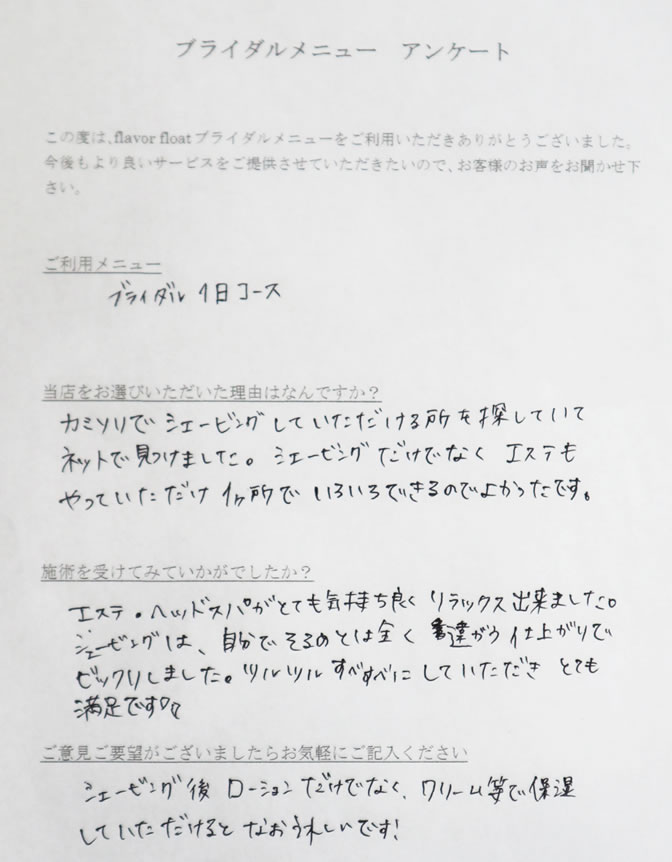 ブライダルメニュー　アンケート
この度は、flavor float ブライダルメニューをご利用いただきありがとうございました。
今後もより良いサービスをご提供させていただきたいので、お客様のお声をお聞かせ下
さい。
ご利用メニュー
ブライダル 1日コース
当店をお選びいただいた理由はなんですか？
カミソリで シェービングしていただける所を探していて
ネットで見つけました。シェービングだけでなく エステも
やっていただけ 1ヶ所で いろいろできるのでよかったです。
施術を受けてみていかがでしたか？
エステ・ヘッドスパがとても気持ち良く リラックス出来ました。
シェービングは、自分でそるのとは全く 違がう 仕上がりで
ビックリしました。ツルツル すべすべに していただき とても
満足です♡
ご意見ご要望がございましたらお気軽にご記入ください
シェービング後 ローションだけでなく、クリーム等で保湿
していただけると なおうれしいです！